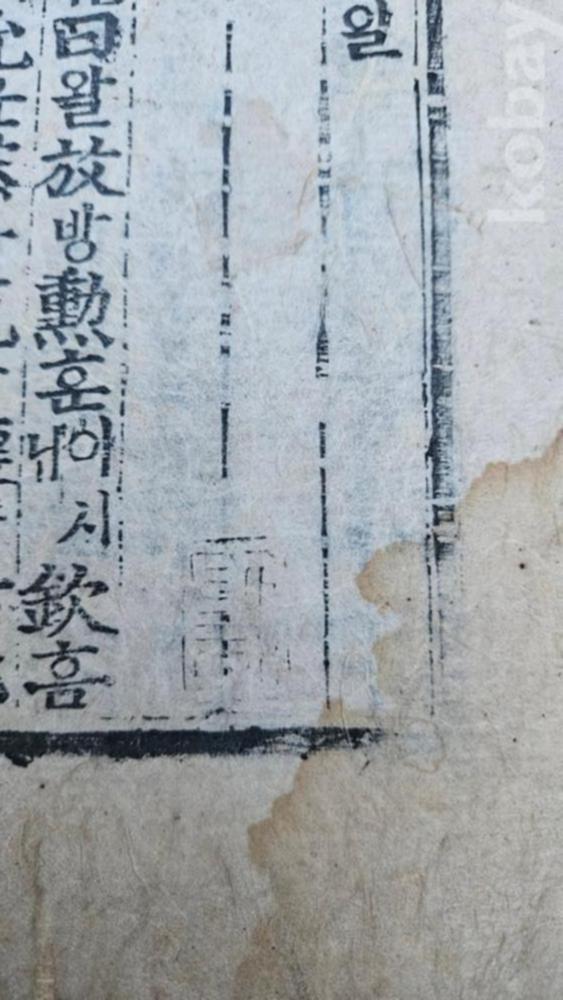 왈
曰왈放방勳훈이시니欽흠
kobay